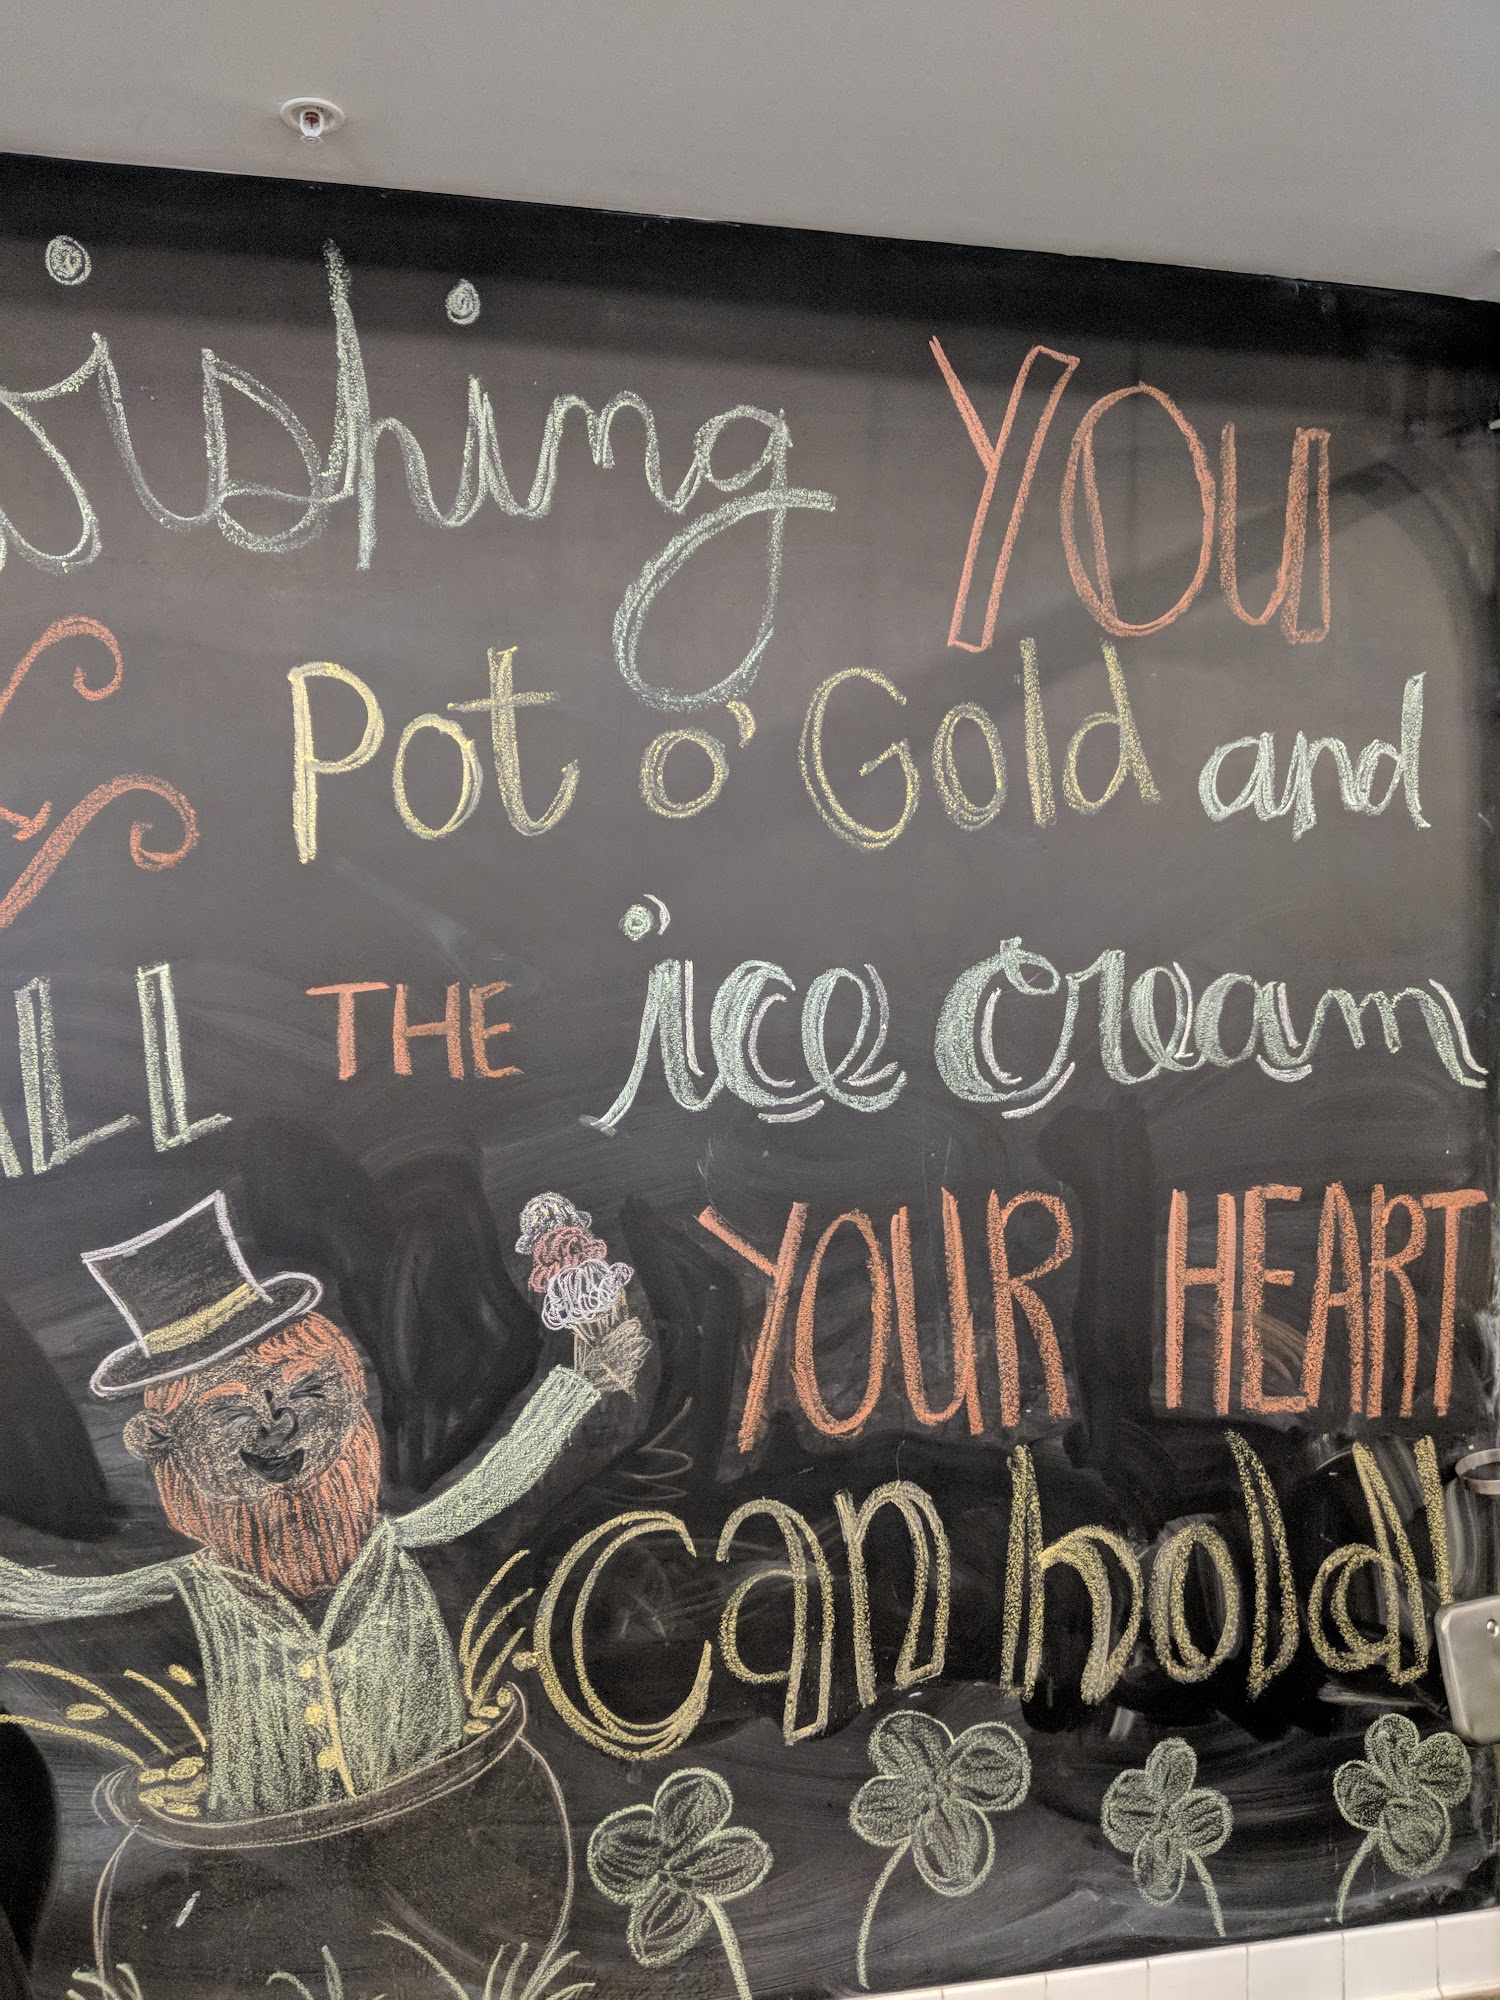 Wishing YOU
Pot o' Gold and
ALL THE ice cream
YOUR HEART
can hold!